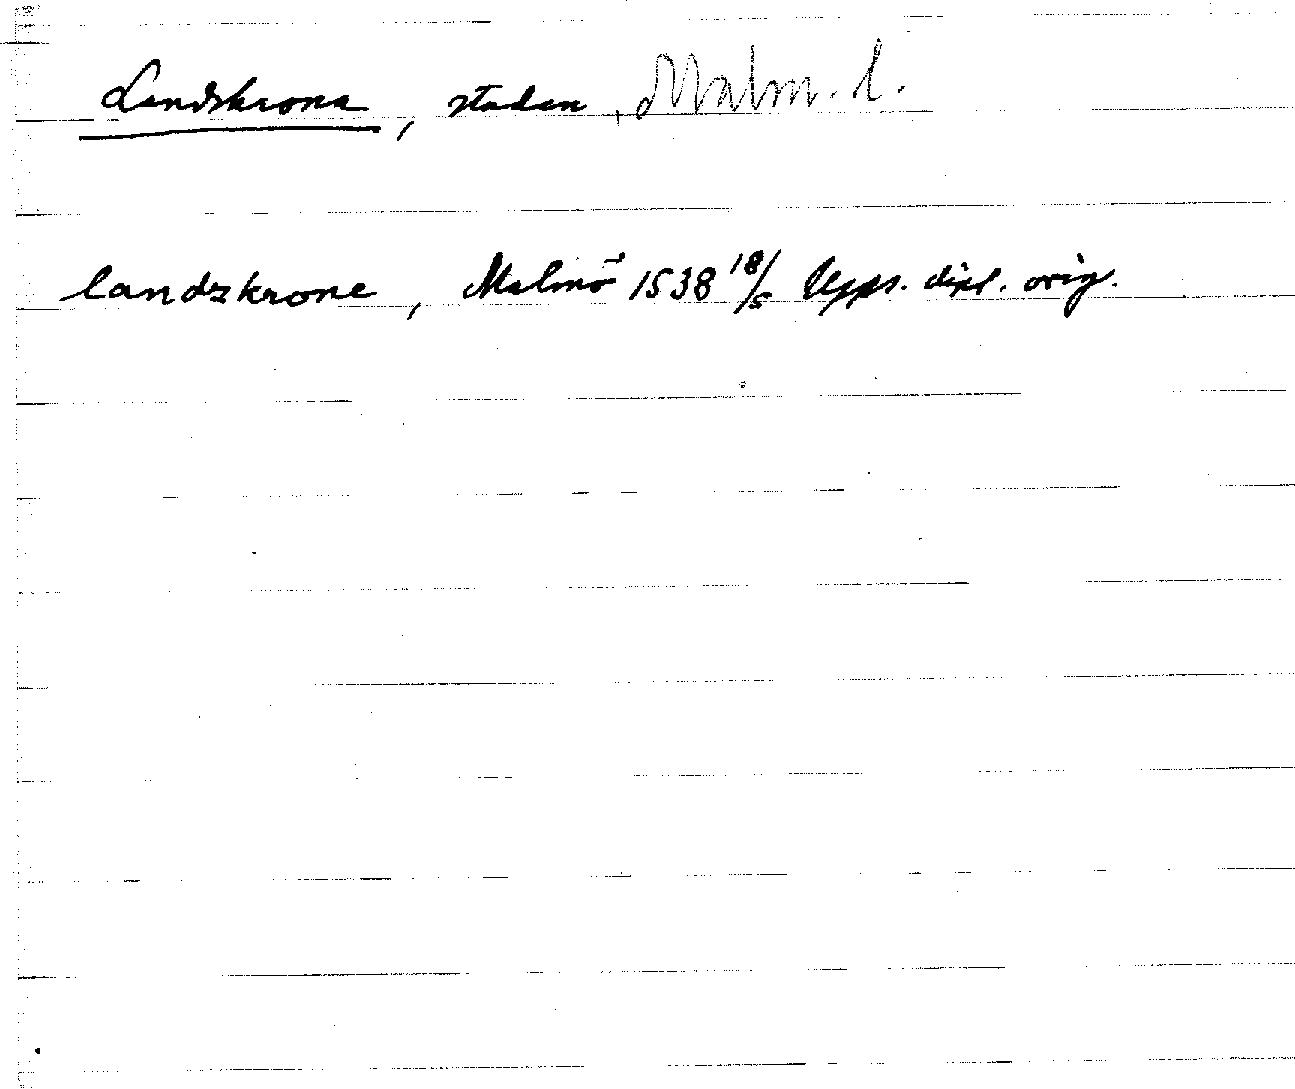 Landskrona, staden, Malm. l.
landzkrone, Malmö 1538 18/5 Upps. dipl. orig.